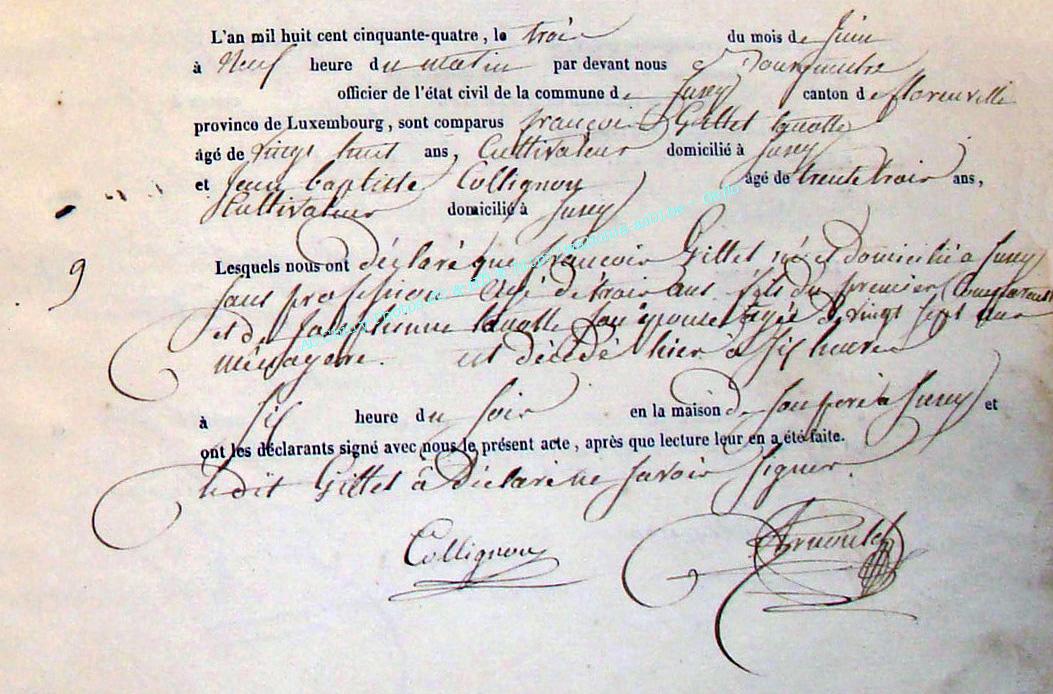 L'an mil huit cent cinquante-quatre, le trois du mois de Juin
à Neuf heure du matin par devant nous
officier de l'état civil de la commune de canton de florenville
province de Luxembourg, sont comparus françois Gillet
âgé de vingt huit ans, Cultivateur domicilié à
et Jean baptiste Collignon âgé de trente trois ans,
Cultivateur domicilié à
9
Lesquels nous ont déclaré que françois Gillet né et domicilié à
sans profession agé de trois ans fils du premier Comparant
et de son épouse agée de vingt sept ans
ménagere. est décédé hier à six heures
à six heure du soir en la maison de son père à et
ont les déclarants signé avec nous le présent acte, après que lecture leur en a été faite.
ledit Gillet à déclaré ne savoir signer.
Collignon